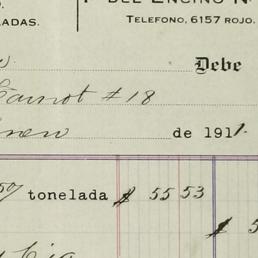 LADAS.
DEL ENCINO N
TELEFONO, 6157 ROJO.
Debe
Carnot #18
Enero de 1911.
50/ tonelada $ 55 53
$ 5
Cia